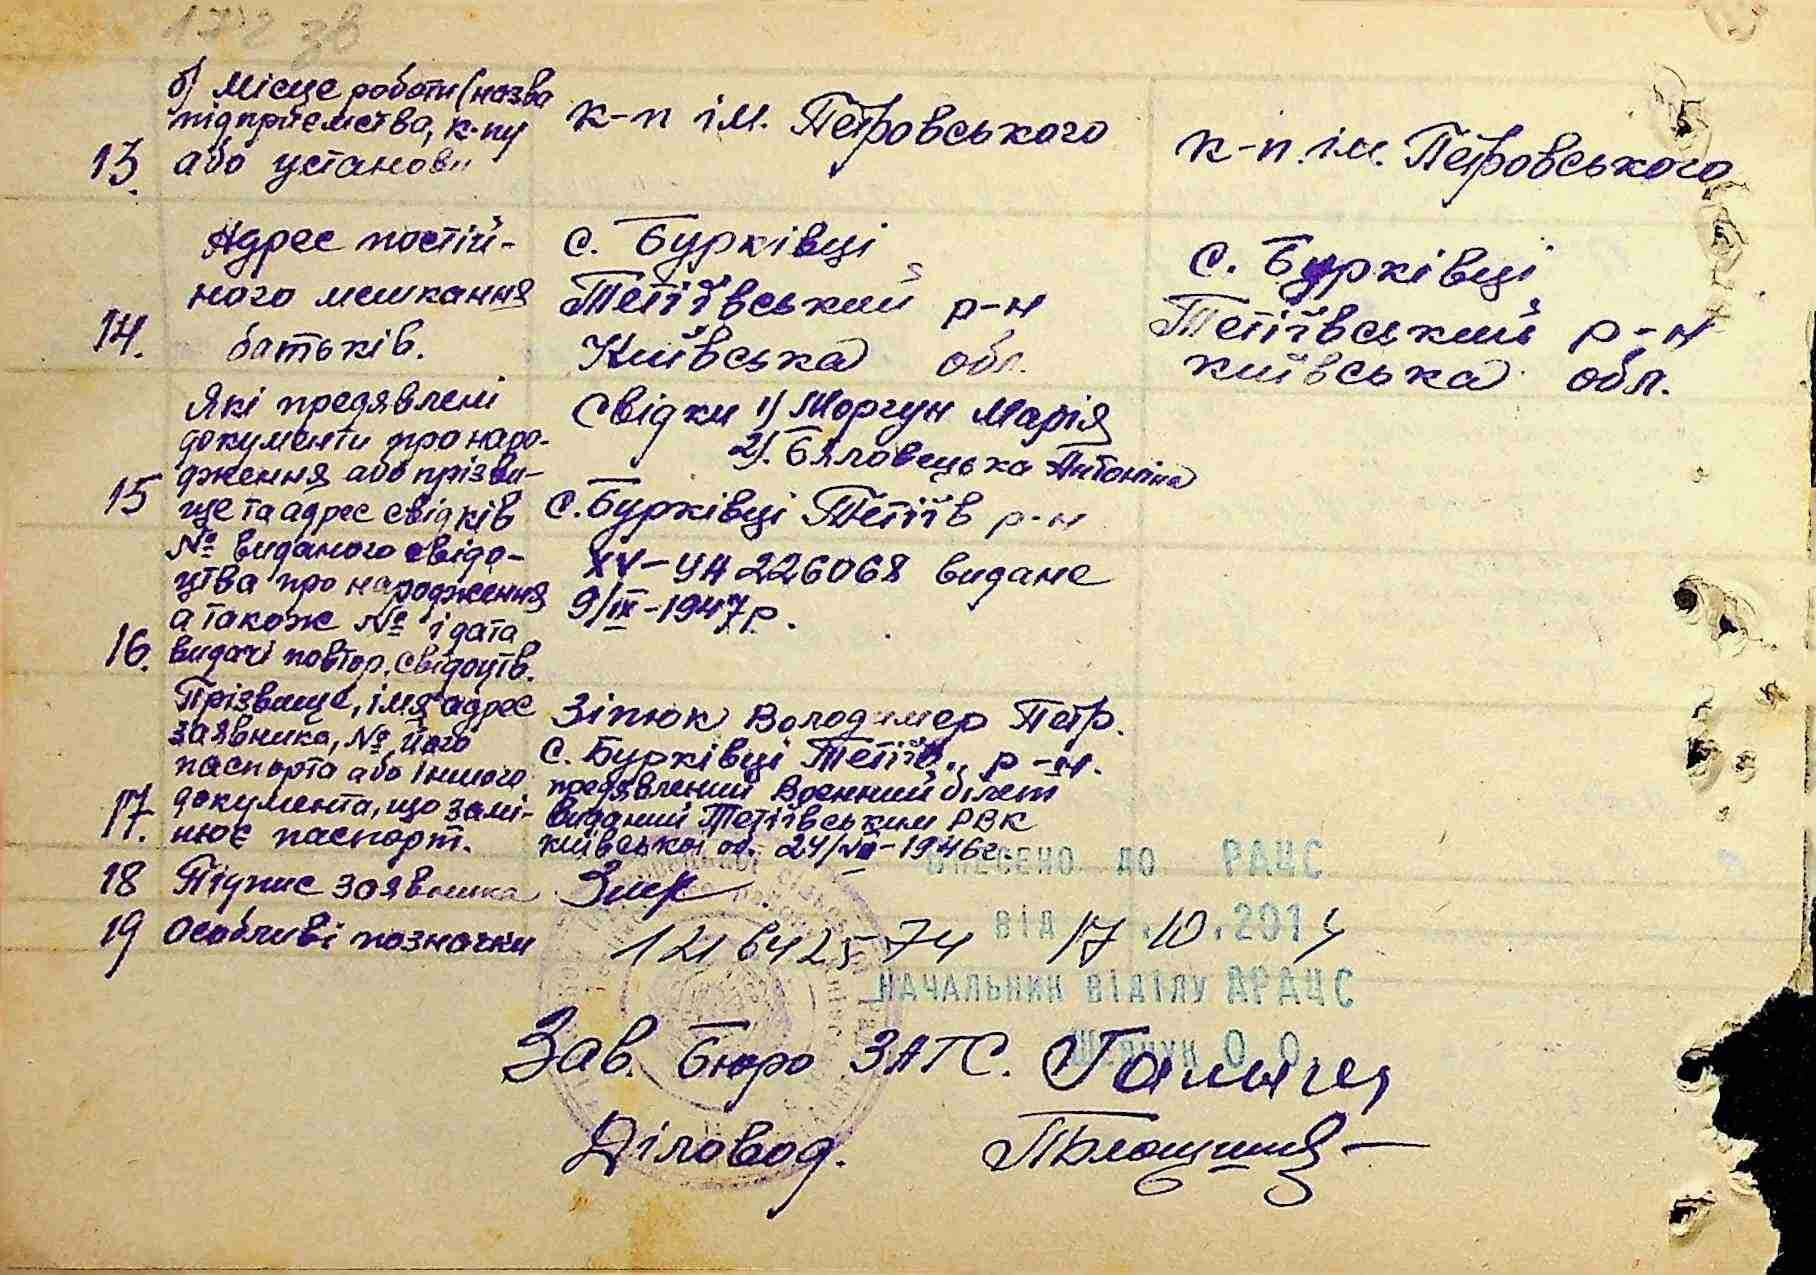 172 зв
б) Місце роботи (назва
підприємства, к-пу
13. або установи
к-п ім. Петровського
к-п. ім. Петровського
Адрес постій-
ного мешкання
14. батьків.
с. Бурківці
Тетіївський р-н
Київська обл.
с. Бурківці
Тетіївський р-н
київська обл.
Які предявлені
документи про наро-
дження або прізви-
15 ще та адрес свідків
Свідки 1) Моргун Марія
2). Бяловецька Антоніна
с. Бурківці Тетіїв р-н
№ виданого свідо-
цтва про народження
а також № і дата
16. видачі повтор. свідоцтв.
XV-УА 226068 видане
9/IX-1947р.
Прізвище, імя, адрес
заявника, № його
паспорта або іншого
документа, що замі-
17. нює паспорт.
Зіпюк Володимер Петр.
с. Бурківці Тетіїв. р-н.
предявлений Военний білет
виданий Тетіївським РВК
київської об. 24/VII-1946г.
18 Підпис заявника Зип
19 Особливі позначки 121642574 17.10.2014
ВНЕСЕНО ДО РАЦС
ВІД
НАЧАЛЬНИК ВІДІЛУ ДРАЦС
О.О.
Зав. Бюро ЗАГС.
Діловод.